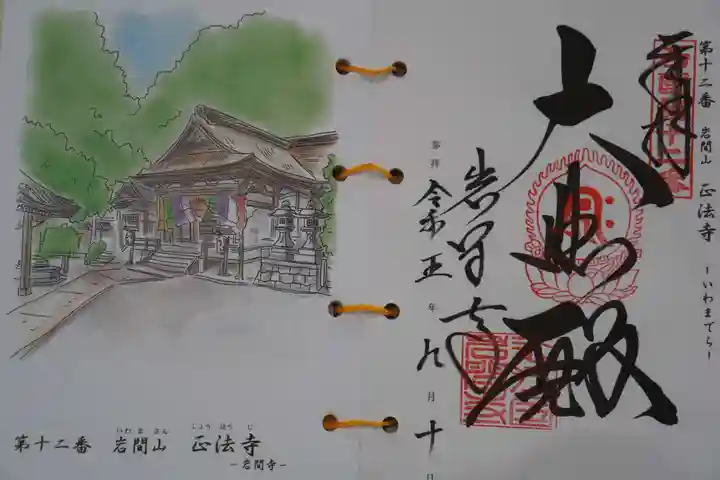 いわ ま さん しょう ほう じ
第十二番 岩間山 正法寺
-岩間寺-
第十二番 岩間山 正法寺 -いわまでら-
奉拝
大悲殿
岩间寺
参拝 令和 五 年 九 月 十 日